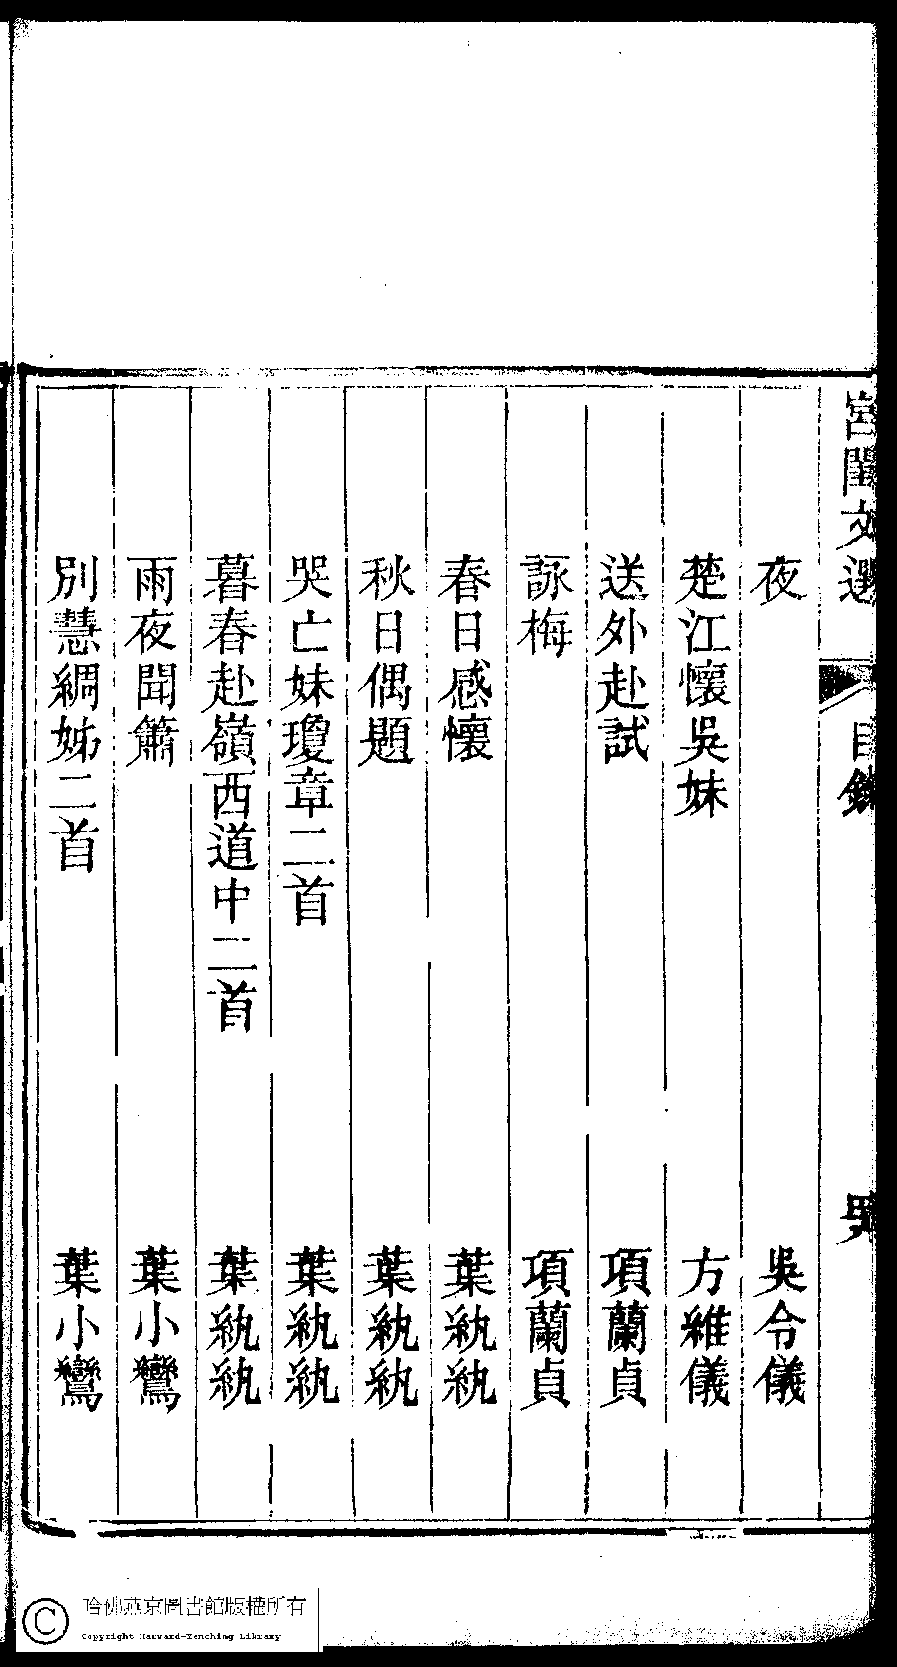 宮閨文選 目錄
夜 吳令儀
楚江懷吳妹 方維儀
送外赴試 項蘭貞
詠梅 項蘭貞
春日感懷 葉紈紈
秋日偶題 葉紈紈
哭亡妹瓊章二首 葉紈紈
暮春赴嶺西道中二首 葉紈紈
雨夜聞簫 葉小鸞
別蕙綢姊二首 葉小鸞
哈佛燕京圖書館版權所有
Copyright Harvard-Yenching Library